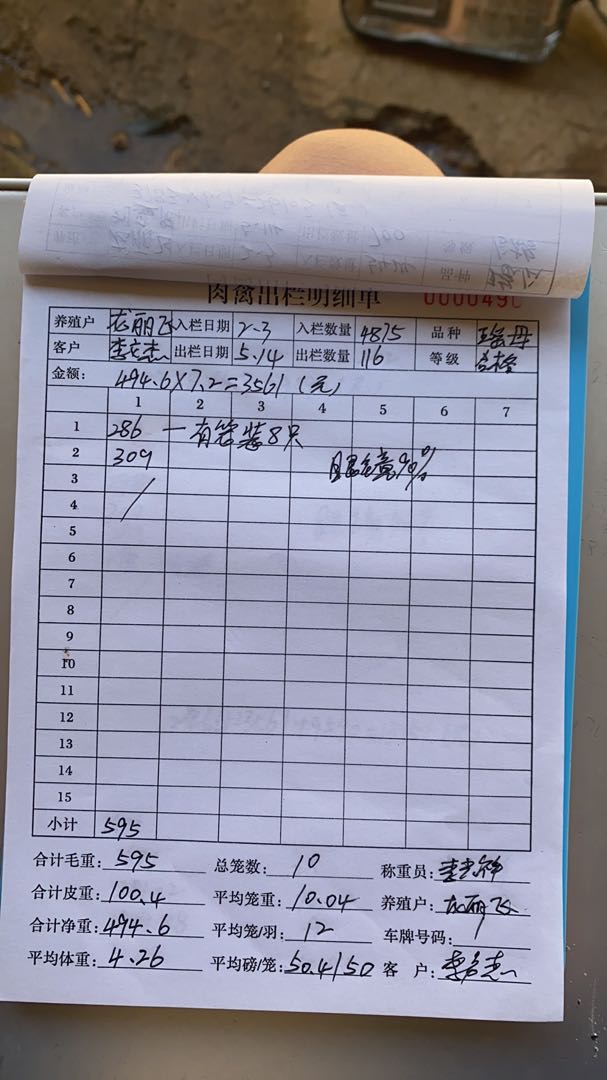 肉禽出栏明细单 000049
养殖户 龙丽飞 入栏日期 2-3 入栏数量 4875 品种 瑶丹
客户 出栏日期 5.14 出栏数量 116 等级 合格
金额: 494.6×7.2=3561(元)
1 2 3 4 5 6 7
1 286 一有笼装8只
2 309 眼镜90%
3
4
5
6
7
8
9
10
11
12
13
14
15
小计 595
合计毛重: 595 总笼数: 10 称重员:
合计皮重: 100.4 平均笼重: 10.04 养殖户: 龙丽飞
合计净重: 494.6 平均笼/羽: 12 车牌号码:
平均体重: 4.26 平均磅/笼: 50.4/50 客 户: